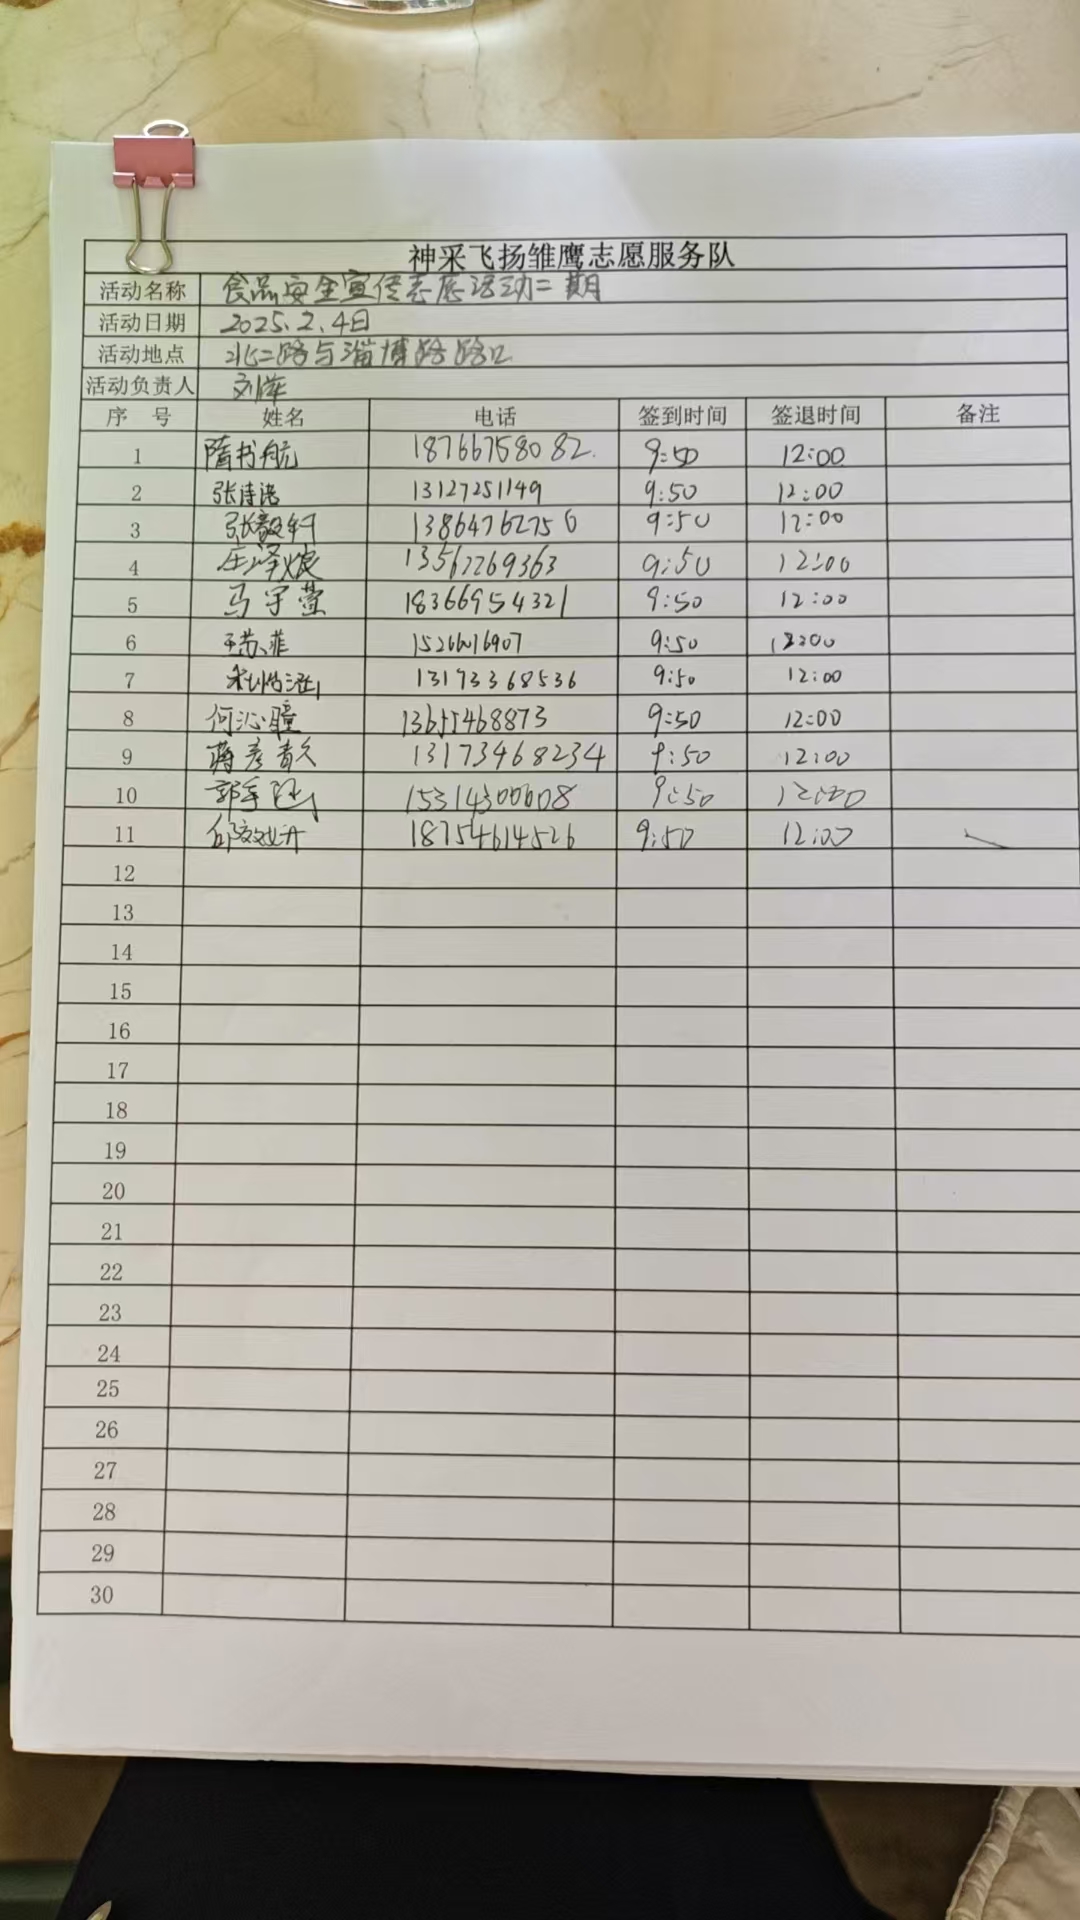 神采飞扬雏鹰志愿服务队
活动名称 食品安全宣传志愿活动二期
活动日期 2025.2.4日
活动地点 北二路与淄博路路口
活动负责人 刘萍
序 号 姓名 电话 签到时间 签退时间 备注
1 隋书航 18766758082. 9:50 12:00
2 张诗语 13127251149 9:50 12:00
3 张毅轲 13864762756 9:50 12:00
4 庄泽烺 13562269363 9:50 12:00
5 马宇萱 18366954321 9:50 12:00
6 王苏菲 15266016907 9:50 12:00
7 13173368536 9:50 12:00
8 何沁瞳 13655468873 9:50 12:00
9 蒋彦青久 13173468234 9:50 12:00
10 15314300608 9:50 12:00
11 18754614526 9:50 12:00
12
13
14
15
16
17
18
19
20
21
22
23
24
25
26
27
28
29
30